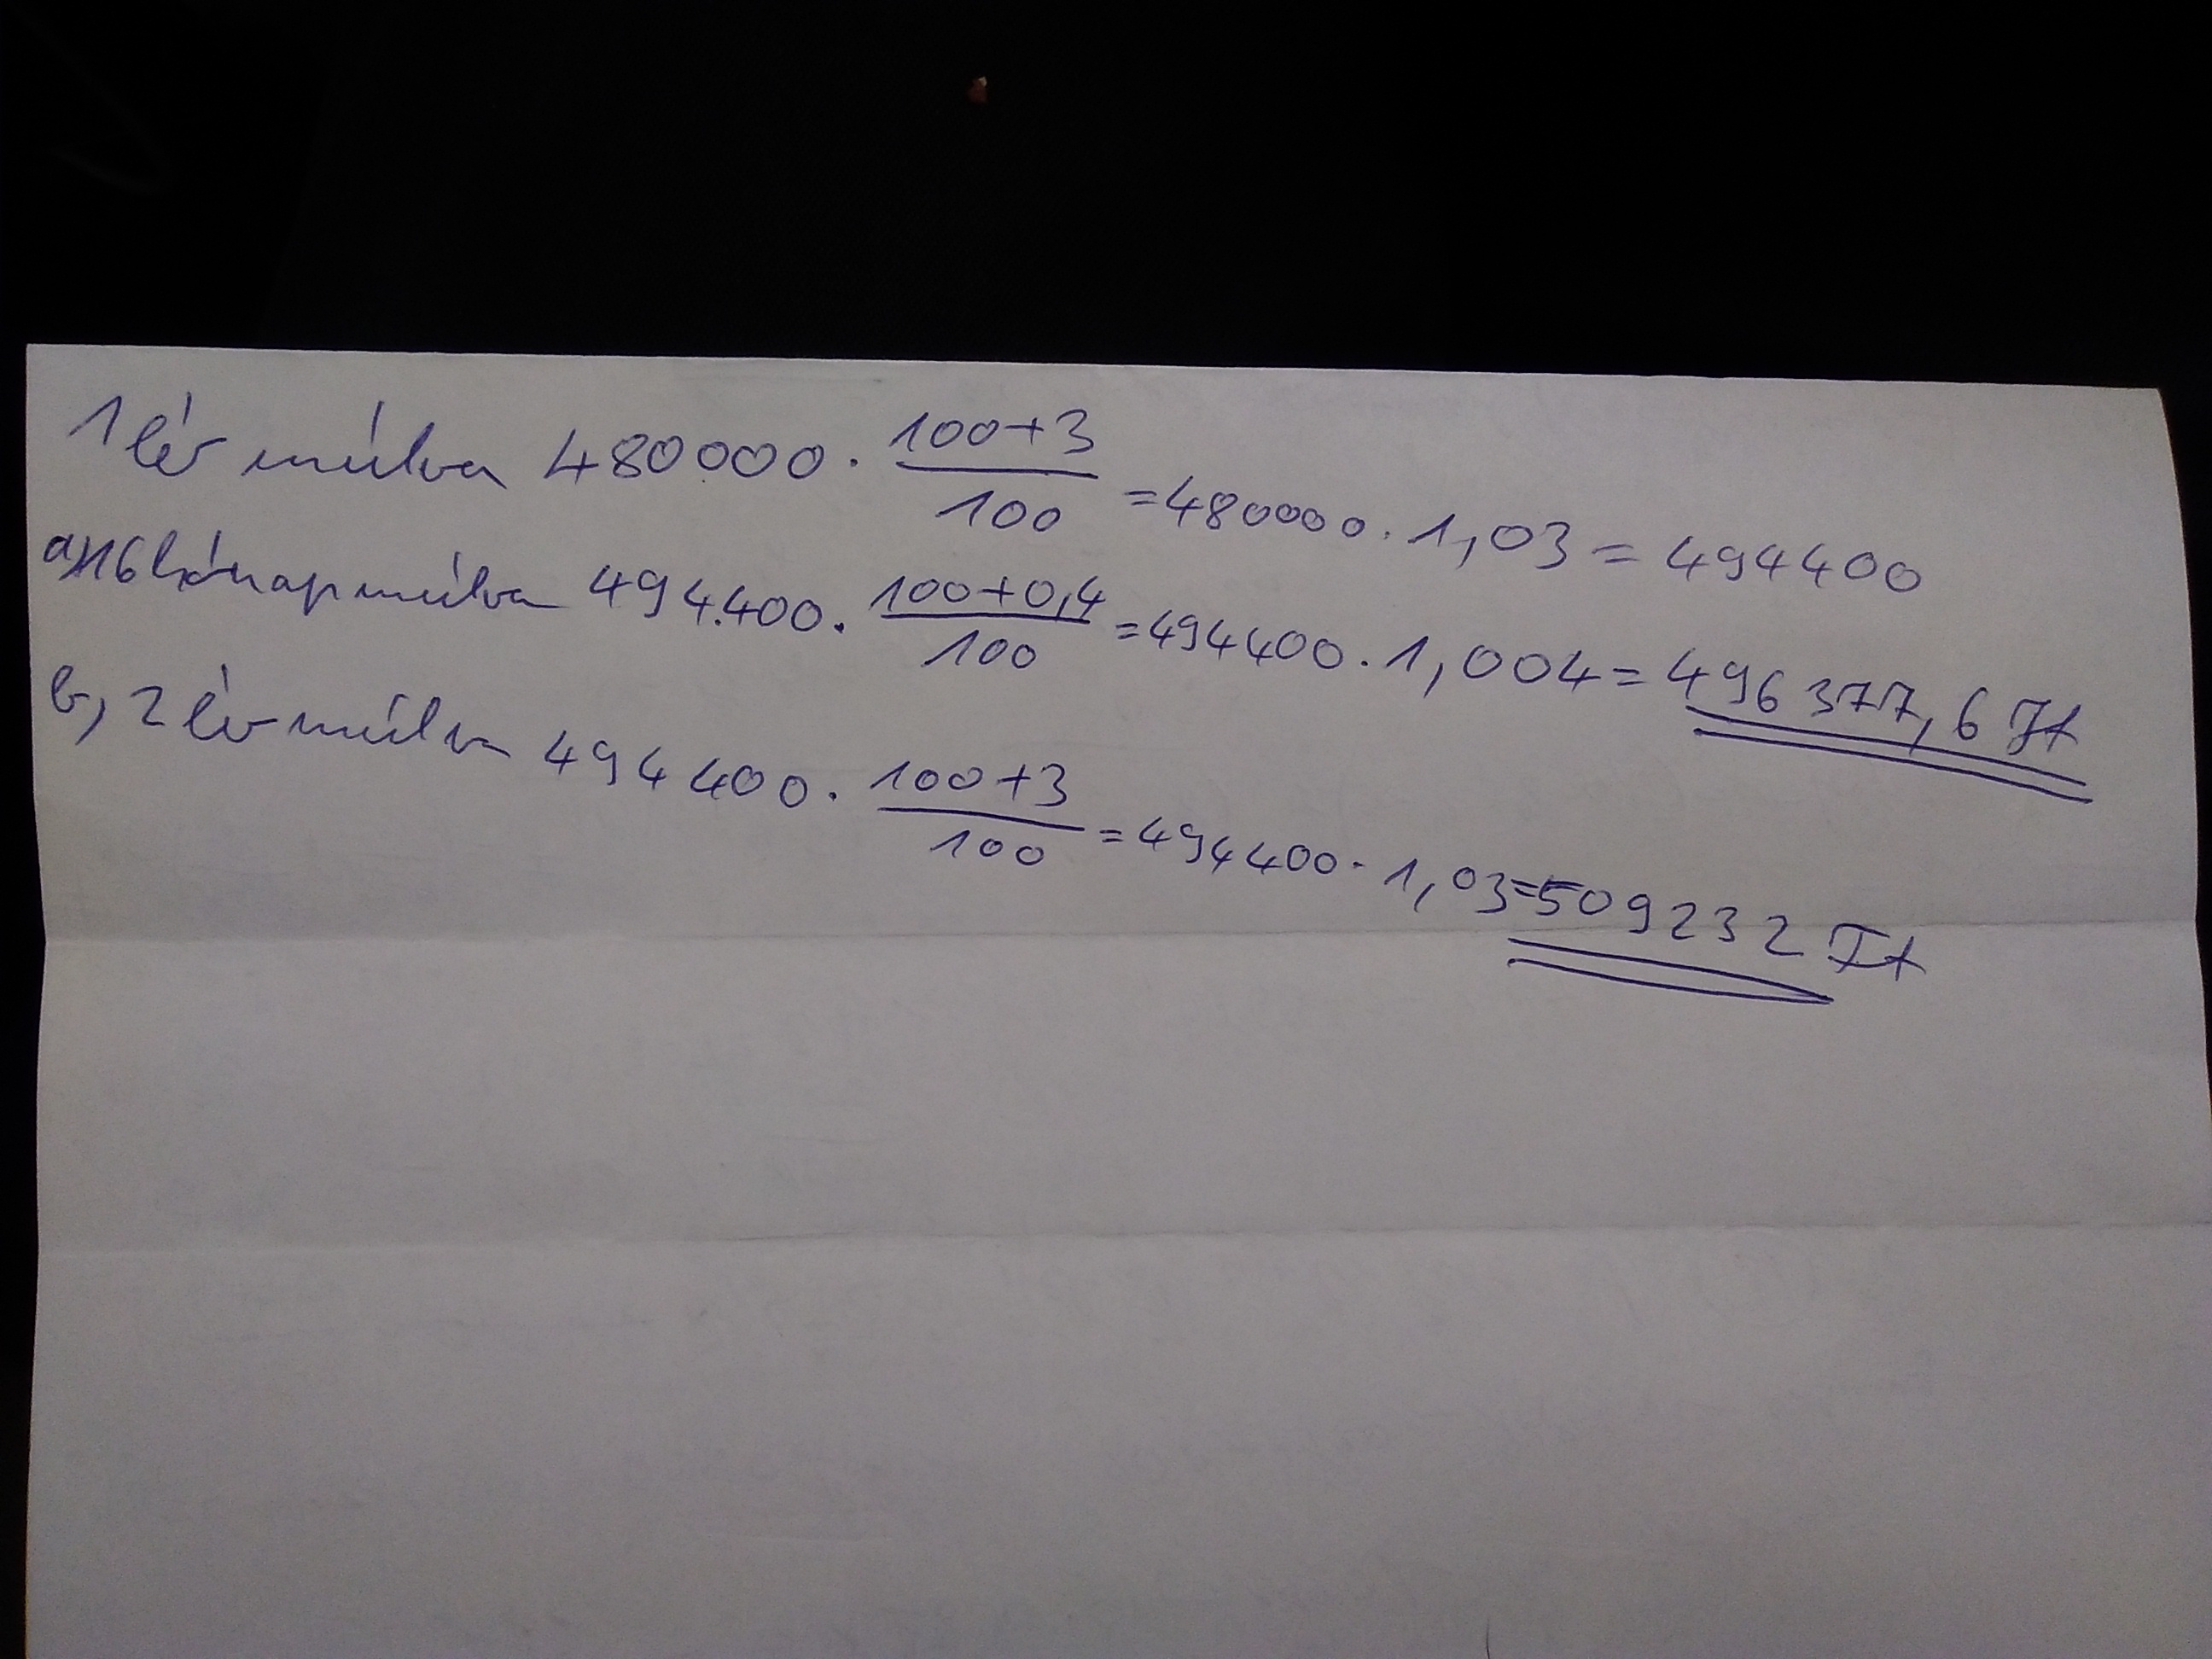 1 év múlva 480000 · (100+3)/100 = 480000 · 1,03 = 494400
a, 16 hónap múlva 494.400 · (100+0,4)/100 = 494400 · 1,004 = 496377,6 Ft
b, 2 év múlva 494400 · (100+3)/100 = 494400 · 1,03 = 509232 Ft